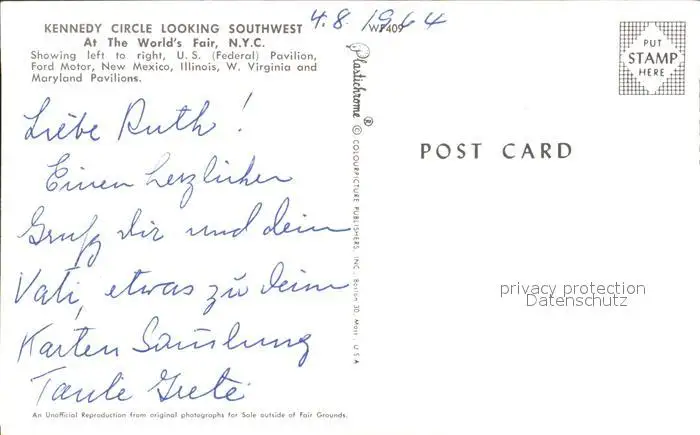 KENNEDY CIRCLE LOOKING SOUTHWEST
At The World's Fair, N.Y.C.
Showing left to right, U.S. (Federal) Pavilion,
Ford Motor, New Mexico, Illinois, W. Virginia and
Maryland Pavilions.
4.8.1964
WF409
PUT
STAMP
HERE
Liebe Ruth!
Einen herzlichen
Gruß dir und dein
Vati, etwas zu deine
Karten Samlung
Tante Grete
Plastichrome ®
© COLOURPICTURE PUBLISHERS, INC., Boston 30, Mass., U.S.A
POST CARD
privacy protection
Datenschutz
An Unofficial Reproduction from original photographs for Sale outside of Fair Grounds.